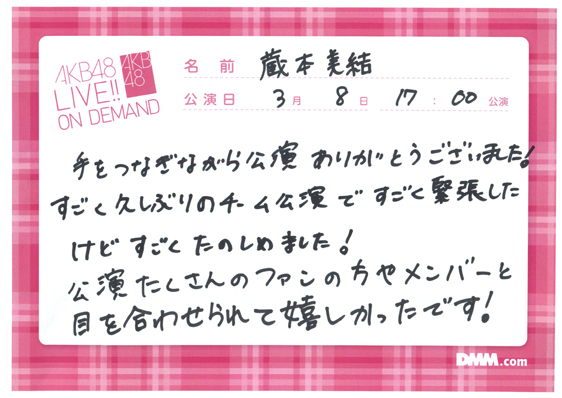 AKB48
LIVE!!
ON DEMAND
AKB
48
名前 蔵本美結
公演日 3月8日 17:00公演
手をつなぎながら公演ありがとうございました!
すごく久しぶりのチーム公演ですごく緊張した
けどすごくたのしめました!
公演たくさんのファンの方やメンバーと
目を合わせられて嬉しかったです!
DMM.com